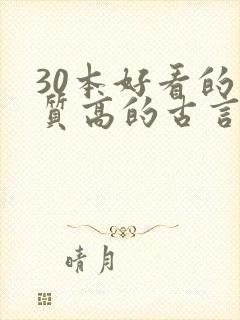 30本好看的
质高的古言
晴月